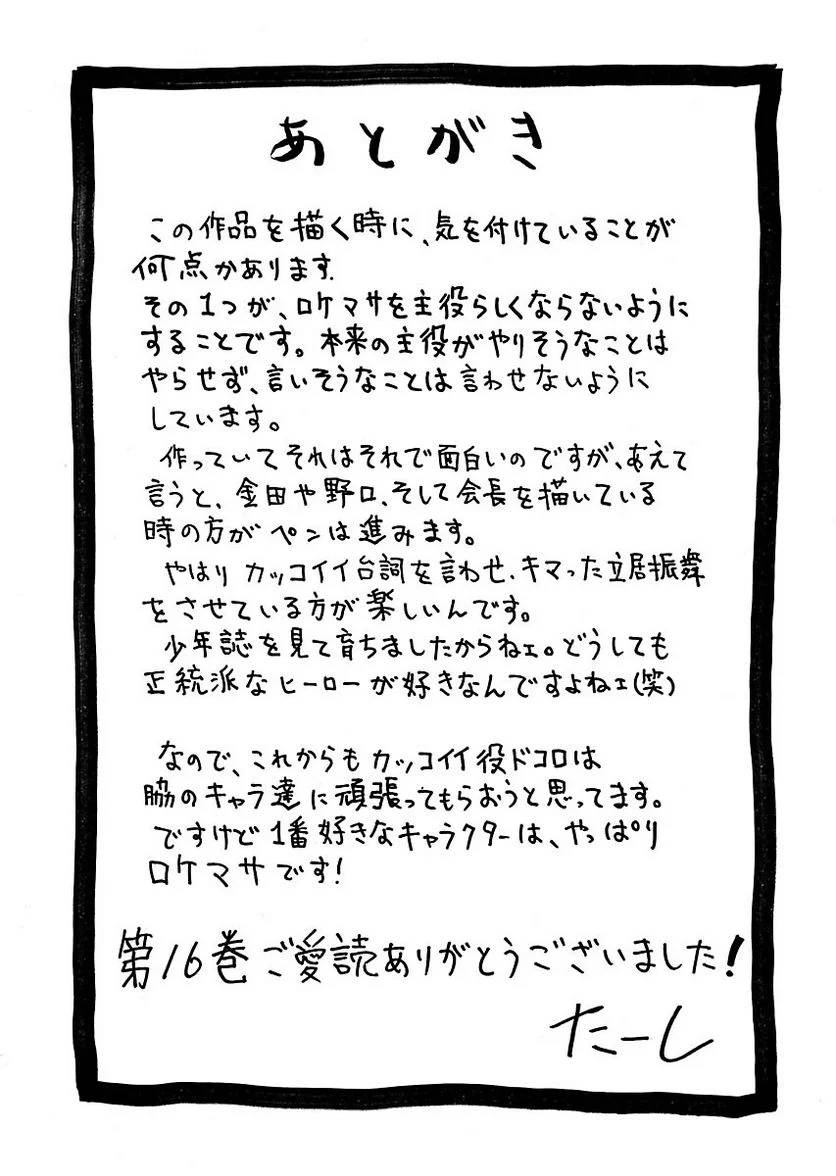 あとがき
この作品を描く時に、気を付けていることが
何点かあります.
その1つが、ロケマサを主役らしくならないように
することです。本来の主役がやりそうなことは
やらせず、言いそうなことは言わせないように
しています。
作っていてそれはそれで面白いのですが、あえて
言うと、金田や野口、そして会長を描いている
時の方がペンは進みます。
やはりカッコイイ台詞を言わせ、キマった立居振舞
をさせている方が楽しいんです。
少年誌を見て育ちましたからねェ。どうしても
正統派なヒーローが好きなんですよねェ(笑)
なので、これからもカッコイイ役ドコロは
脇のキャラ達に頑張ってもらおうと思ってます。
ですけど1番好きなキャラクターは、やっぱり
ロケマサです!
第16巻ご愛読ありがとうございました!
たーし